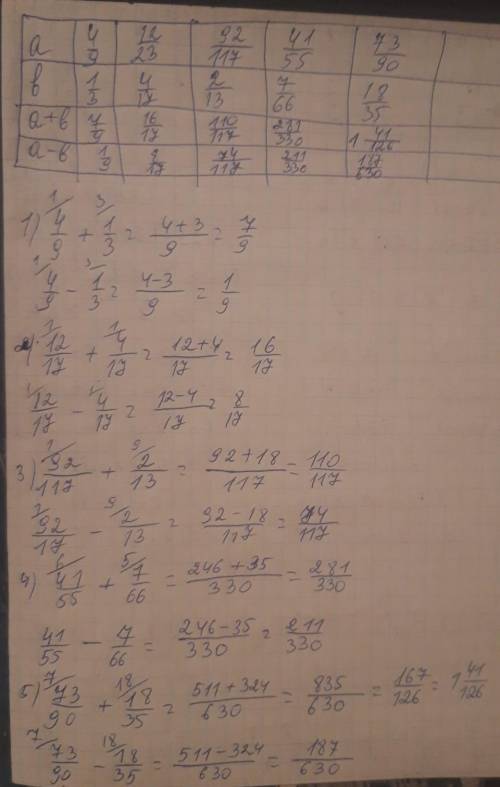 a 4/9 12/23 92/117 41/55 73/90
в 1/3 4/17 2/13 7/66 18/35
a+в 7/9 16/17 110/117 281/330 1 41/126
a-в 1/9 8/17 74/117 211/330 187/630
1) 1/ 4/9 + 3/ 1/3 = (4+3)/9 = 7/9
1/ 4/9 - 3/ 1/3 = (4-3)/9 = 1/9
2) 1/ 12/17 + 1/ 4/17 = (12+4)/17 = 16/17
1/ 12/17 - 1/ 4/17 = (12-4)/17 = 8/17
3) 1/ 92/117 + 9/ 2/13 = (92+18)/117 = 110/117
1/ 92/17 - 9/ 2/13 = (92-18)/117 = 74/117
4) 6/ 41/55 + 5/ 7/66 = (246+35)/330 = 281/330
41/55 - 7/66 = (246-35)/330 = 211/330
5) 7/ 73/90 + 18/ 18/35 = (511+324)/630 = 835/630 = 167/126 = 1 41/126
7/ 73/90 - 18/ 18/35 = (511-324)/630 = 187/630